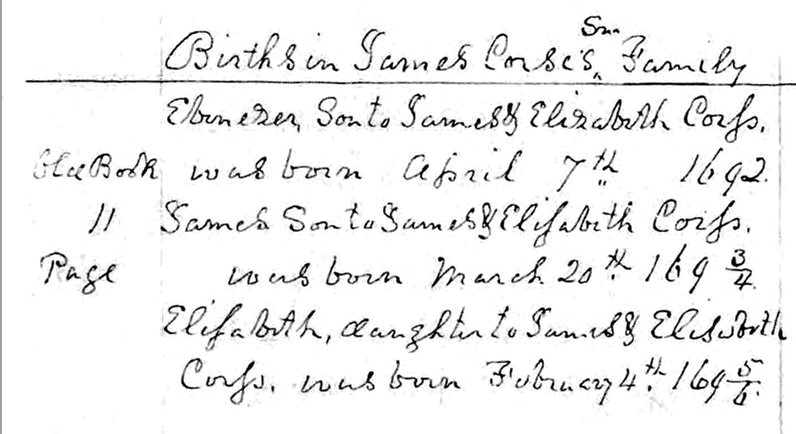 Sen.
Births in James Corse's, Family
Ebenezer, Son to James & Elizabeth Corss.
Old Book was born April 7th 1692.
11 James Son to James & Elisabeth Corss.
Page was born March 20th 169 3/4
Elisabeth, daughter to James & Elisabeth
Corss. was born February 4th. 169 5/6.